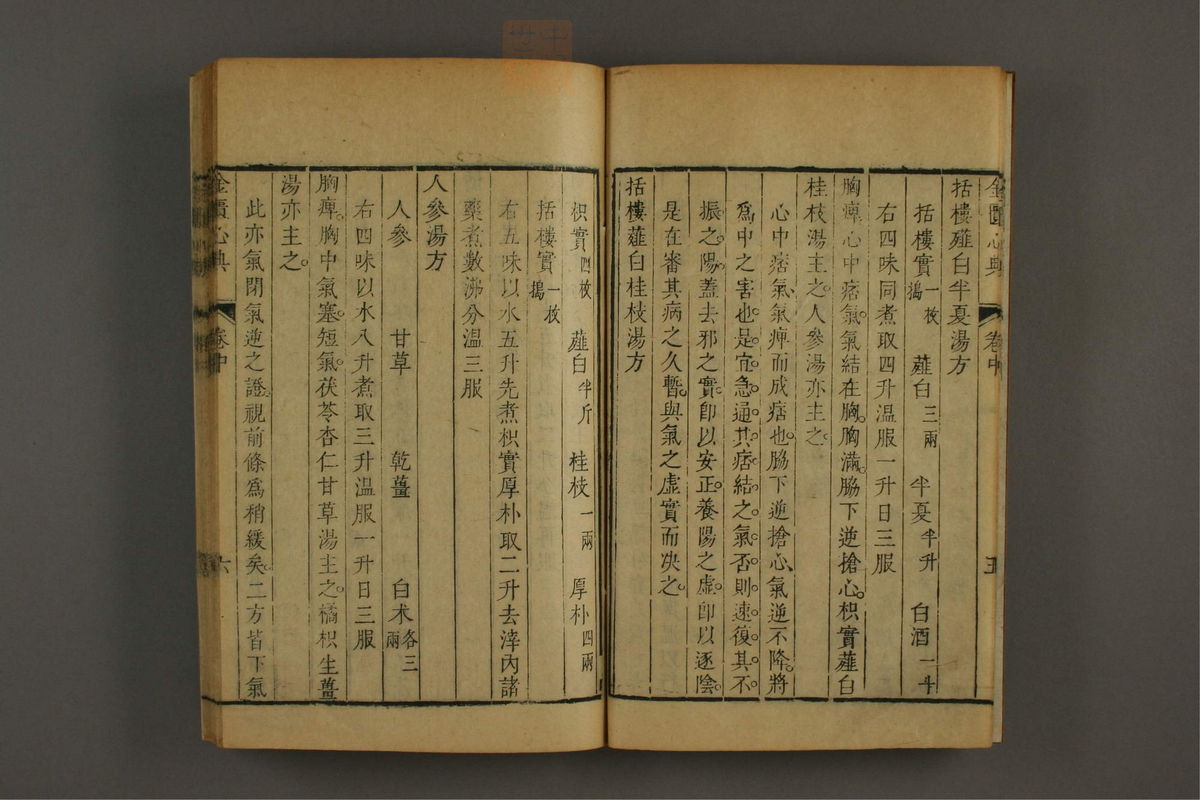 金匱心典
卷中
五
括樓薤白半夏湯方
括樓實一枚搗 薤白三兩 半夏半升 白酒一斗
右四味同煮取四升溫服一升日三服
胸痺心中痞氣氣結在胸胸滿脇下逆搶心枳實薤白
桂枝湯主之人參湯亦主之
心中痞氣氣痺而成痞也脇下逆搶心氣逆不降將
爲中之害也是宜急通其痞結之氣否則速復其不
振之陽蓋去邪之實卽以安正養陽之虛卽以逐陰
是在審其病之久暫與氣之虛實而决之
括樓薤白桂枝湯方
枳實四枚 薤白半斤 桂枝一兩 厚朴四兩
括樓實一枚搗
右五味以水五升先煮枳實厚朴取二升去滓內諸
藥煮數沸分溫三服
人參湯方
人參 甘草 乾薑 白术各三兩
右四味以水八升煮取三升溫服一升日三服
胸痺胸中氣塞短氣茯苓杏仁甘草湯主之橘枳生薑
湯亦主之
此亦氣閉氣逆之證視前條爲稍緩矣二方皆下氣
金匱心典
卷中
六